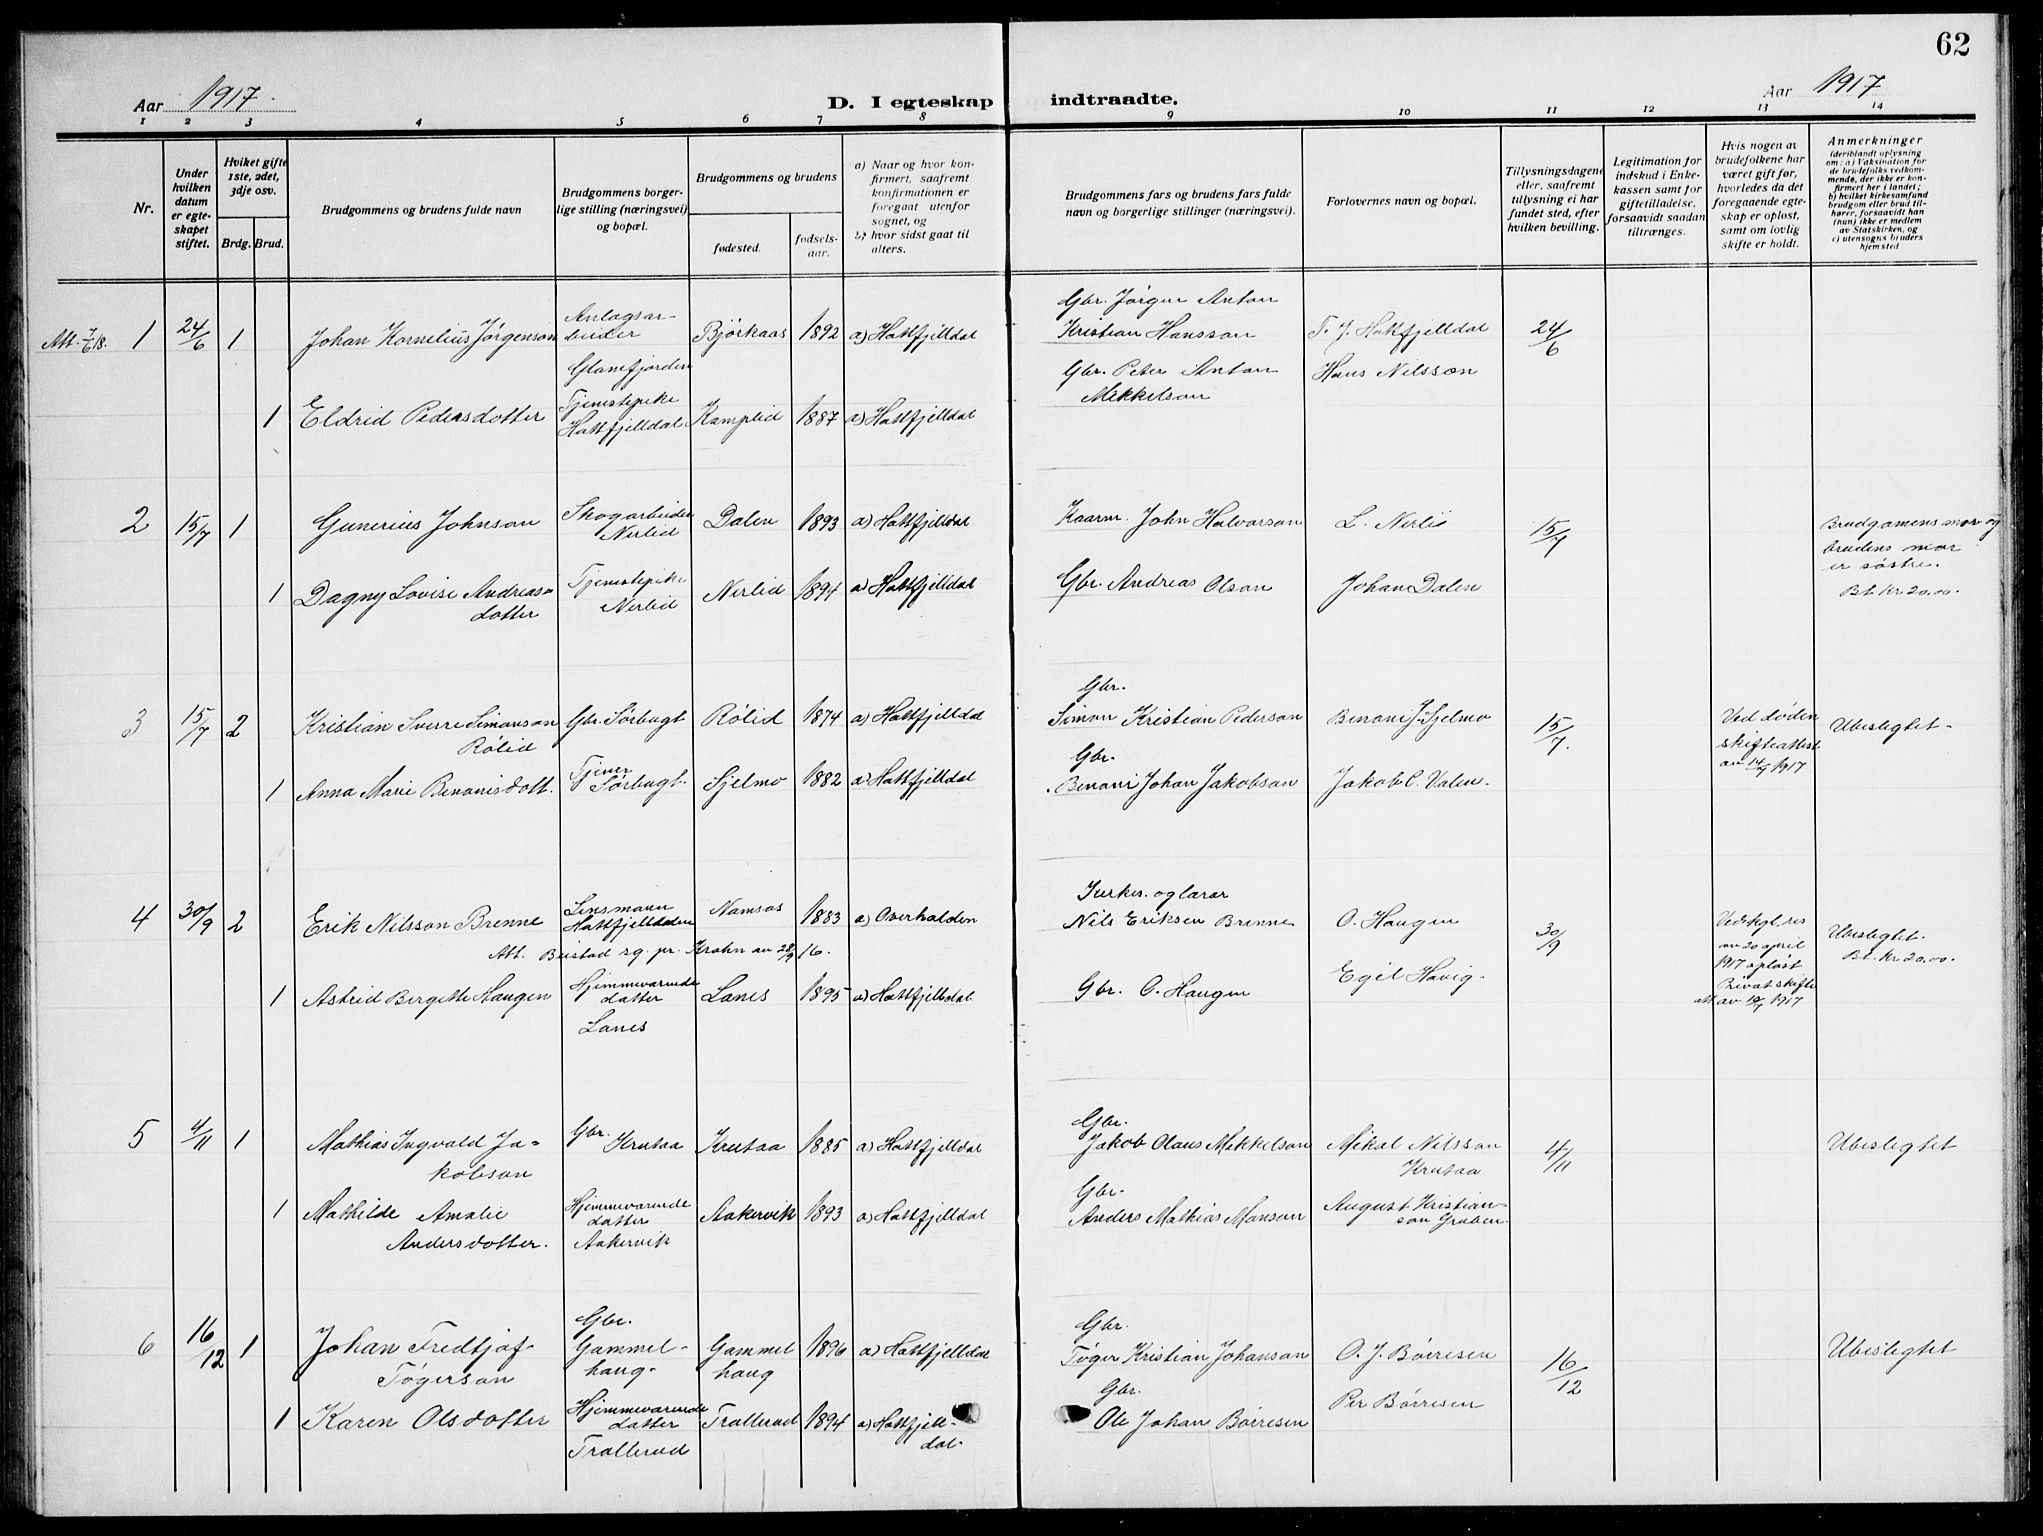 62
Aar 1917.
D. I egteskap indtraadte.
Aar 1917
1 2 3 4 5 6 7 8 9 10 11 12 13 14
Nr.
Under hvilken datum er egteskapet stiftet.
Hviket gifte 1ste, 2det, 3dje osv.
Brdg. Brud.
Brudgommens og brudens fulde navn
Brudgommens borgerlige stilling (næringsvei) og bopæl.
Brudgommens og brudens
fødested.
fødselsaar.
a) Naar og hvor konfirmert, saafremt konfirmationen er foregaat utenfor sognet, og
b) hvor sidst gaat til alters.
Brudgommens fars og brudens fars fulde navn og borgerlige stillinger (næringsvei).
Forlovernes navn og bopæl.
Tillysningsdagene eller, saafremt tillysning ei har fundet sted, efter hvilken bevilling.
Legitimation for indskud i Enkekassen samt for giftetilladelse, forsaavidt saadan tiltrænges.
Hvis nogen av brudefolkene har været gift før, hvorledes da det foregaaende egteskap er opløst, samt om lovlig skifte er holdt.
Anmerkninger (deriblandt oplysning om: a) Vaksination for de brudefolks vedkommende, der ikke er konfirmert her i landet; b) hvilket kirkesamfund brudgom eller brud tilhører, forsaavidt han (hun) ikke er medlem av Statskirken, og c) utensogns bruders hjemsted
Att. 7/6 18. 1 24/6 1 Johan Kornelius Jørgenson Anlagsarbeider Glomfjorden Bjørkaas 1892 a) Hattfjelldal Gbr. Jørgen Anton Kristian Hansson T. J. Hattfjelldal 24/6
1 Eldrid Pedersdotter Tjenestepike Hattfjelldal Kamplid 1887 a) Hattfjelldal Gbr. Peter Anton Mekkelson Hans Nilsson
2 15/7 1 Gunerius Johnson Skogarbeider Nerlid Dalen 1893 a) Hattfjelldal Kaarm. John Halvarson L. Nerli 15/7 Brudgomens mor og brudens mor er søstre.
1 Dagny Lovise Andreasdotter Tjenestepike Nerlid Nerlid 1894 a) Hattfjelldal Gbr. Andreas Olson Johan Dalen Bt. kr. 20,00.
3 15/7 2 Kristian Sverre Simonson Rølid Gbr. Sørbugt Rølid 1874 a) Hattfjelldal Gbr. Simon Kristian Pederson Benoni J. Sjelmo 15/7. Ved døden skifteattest av 14/7 1917 Ubeslegtet
1 Anna Marie Benonisdott. Tjener Sørbugt. Sjelmo 1882 a) Hattfjelldal Gbr. Benoni Johan Jakobson Jakob C. Valen.
4 30/9 2 Erik Nilsson Brenne Lensmann Hattfjelldalen Namsos 1883 a) Overhalden Kirkes. og lærer Nils Eriksen Brenne O. Haugen 30/9 Ved kgl. res av 20 april 1917 opløst Privat skifte att. av 14/7 1917 Ubeslegtet. Bt. kr. 20,00.
Att. Beistad sg. pr. Krohn av 28/9 16.
1 Astrid Bergette Haugen Hjemmeværende datter Lanes Lanes 1895 a) Hattfjelldal. Gbr. O. Haugen Egil Havig.
5 4/11 1 Mathias Ingvald Jakobson Gbr. Krutaa Krutaa 1885 a) Hattfjelldal Gbr. Jakob Olaus Mekkelson Mikal Nilsson Krutaa 4/11 Ubeslegtet
1 Mathilde Amalie Andersdotter. Hjemmeværende datter Aakervik Aakervik 1893 a) Hattfjelldal Gbr. Anders Mathias Monson August Kristianson Gruben
6 16/12 1 Johan Fredtjof Tøgerson Gbr. Gammelhaug. Gammelhaug 1896 a) Hattfjelldal Gbr. Tøger Kristian Johanson O. J. Børresen 16/12 Ubeslegtet
1 Karen Olsdotter Hjemmeværende datter Trallerud Trallerud 1894 a) Hattfjelldal. Gbr. Ole Johan Børresen Per Børresen